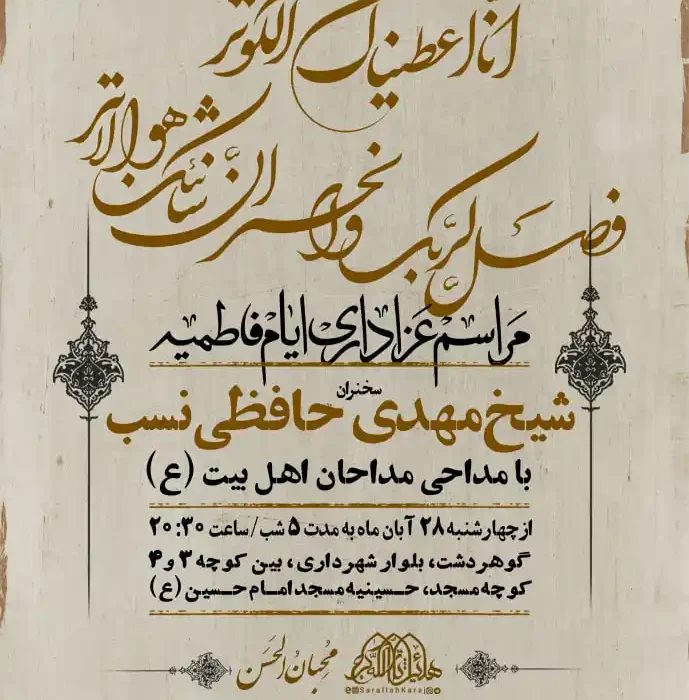 انا اعطیناک الکوثر
فصل لربک وانحر ان شانئک هو الابتر
مراسم عزاداری ایام فاطمیه
سخنران
شیخ مهدی حافظی نسب
با مداحی مداحان اهل بیت (ع)
از چهارشنبه ۲۸ آبان ماه به مدت ۵ شب / ساعت ۲۰:۳۰
گوهردشت، بلوار شهرداری، بین کوچه ۳ و ۴
کوچه مسجد، حسینیه مسجد امام حسین (ع)
محبان الحسن
SarallahKaraj